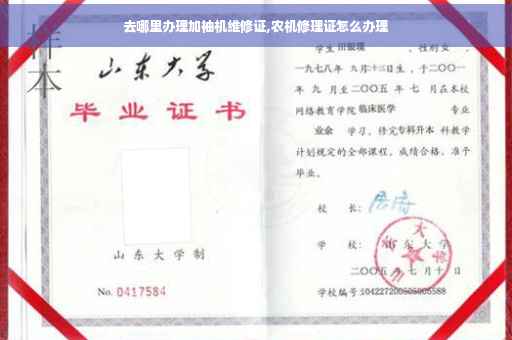 去哪里办理加油机维修证,农机修理证怎么办理
样本
山东大学
毕业证书
山东大学制
No. 0417584
学生 田银璞 ,性别女,
一九七八年 九月十三日生,于二〇〇一
年 九 月至二〇〇五 年 七 月在本校
网络教育学院 临床医学 专业
业余 学习,修完专科升本 科教学
计划规定的全部课程,成绩合格,准予
毕业。
校 长:
学 校: 山东大学
二〇〇五 年 七 月 十 日
学校编号: